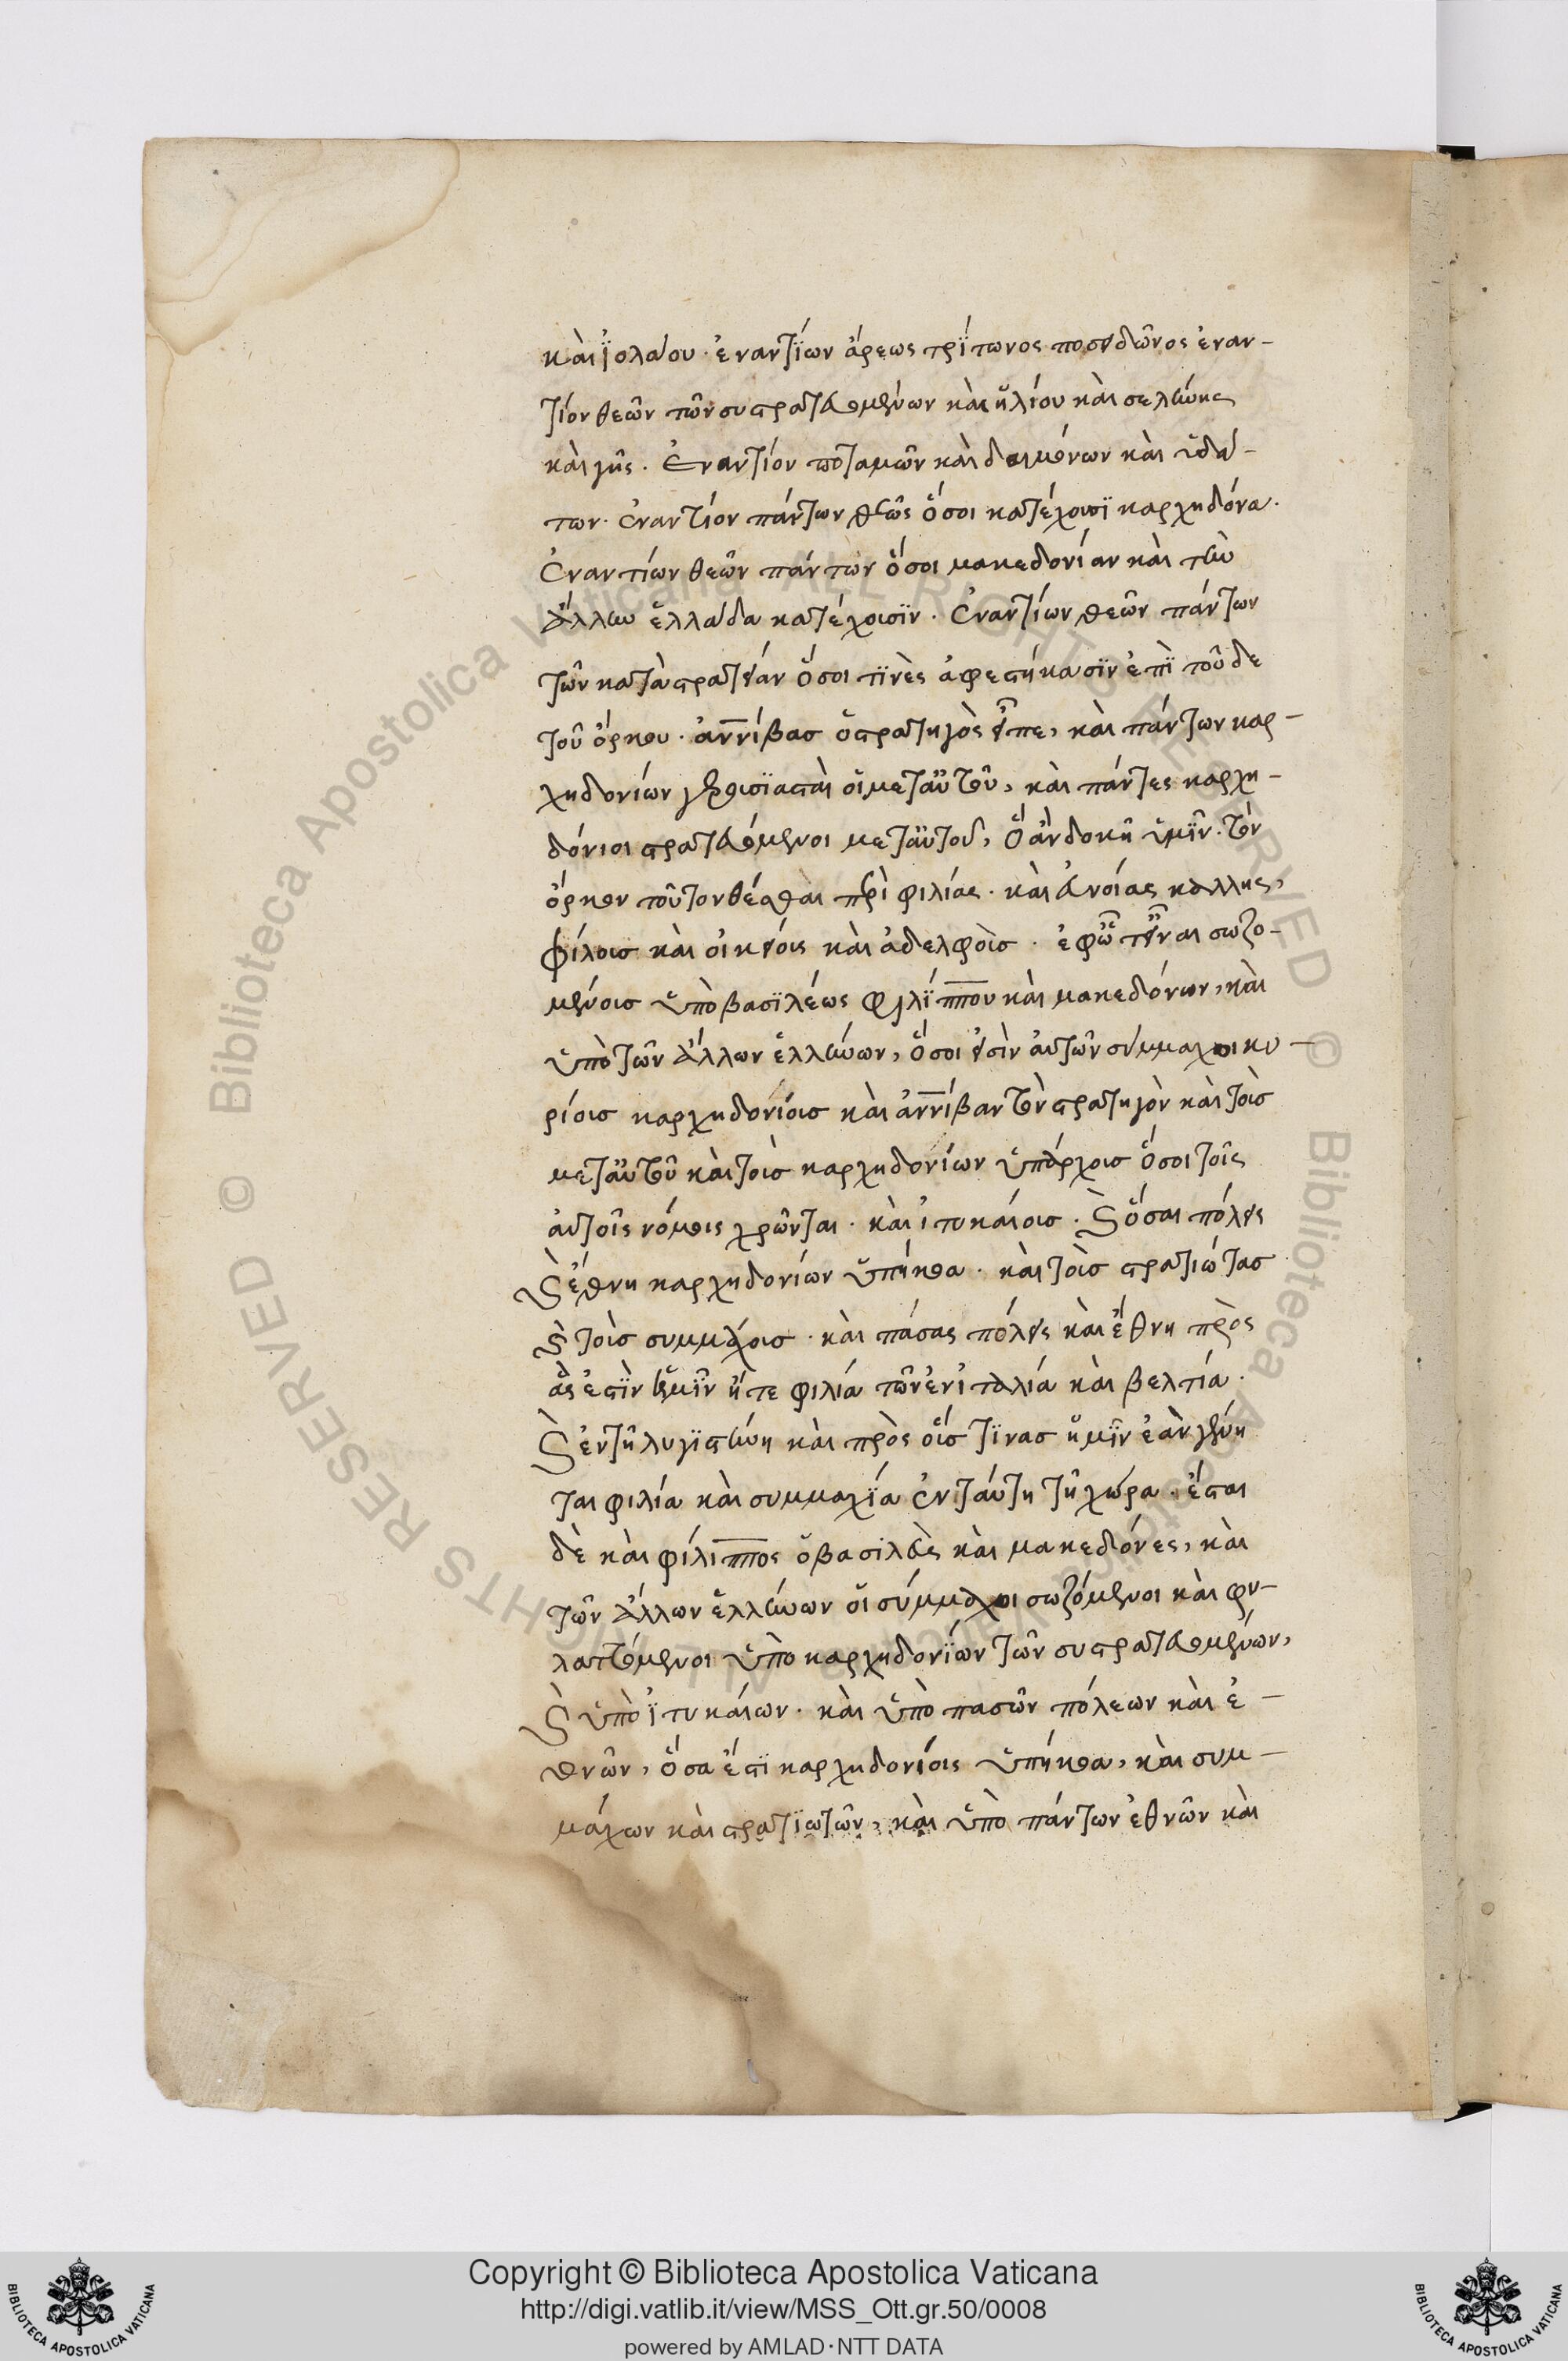 καὶ ἰολάου· ἐναντίων ἄρεως τρίτωνος ποσειδῶνος ἐναν-
τίον θεῶν τῶν συστρατευομένων καὶ ἡλίου καὶ σελήνης
καὶ γῆς. ἐναντίον ποταμῶν καὶ δαιμόνων καὶ ὑδά-
των· ἐναντίον πάντων θεῶς ὅσοι κατέχουσι καρχηδόνα.
ἐναντίων θεῶν πάντων ὅσοι μακεδονίαν καὶ τὴν
ἄλλην ἑλλάδα κατέχουσιν. ἐναντίων θεῶν πάντων
τῶν κατὰ στρατείαν ὅσοι τινὲς ἀφεστήκασιν ἐπὶ τοῦδε
τοῦ ὅρκου. ἀννίβας ὁ στρατηγὸς εἶπε, καὶ πάντων καρ-
χηδονίων γερουσιασταὶ οἱ μετ' αὐτοῦ, καὶ πάντες καρχη-
δόνιοι στρατευόμενοι μετ' αὐτοῦ, ὃ ἂν δοκῆ ὑμῖν. τὸν
ὅρκον τοῦτον θέσθαι περὶ φιλίας· καὶ εὐνοίας καλλης,
φίλοις καὶ οἰκείοις καὶ ἀδελφοῖς· ἐφ' ὧ τ' εἶναι σωζο-
μένοις ὑπὸ βασιλέως φιλίππου καὶ μακεδόνων, καὶ
ὑπὸ τῶν ἄλλων ἑλλήνων, ὅσοι εἰσὶν αὐτῶν σύμμαχοι κυ-
ρίοις καρχηδονίοις καὶ ἀννίβαν τὸν στρατηγὸν καὶ τοῖς
μετ' αὐτοῦ καὶ τοῖς καρχηδονίων ὑπάρχοις ὅσοι τοῖς
αὐτοῖς νόμοις χρῶνται· καὶ ἰτυκαίοις. καὶ ὅσαι πόλεις
καὶ ἔθνη καρχηδονίων ὑπήκοα· καὶ τοῖς στρατιώτας
καὶ τοῖς συμμάχοις· καὶ πάσας πόλεις καὶ ἔθνη πρὸς
ἃς ἐστὶν ἡμῖν ἥτε φιλία τῶν ἐν ἰταλία καὶ βελτία.
καὶ ἐν τῆ λυγιστήνη καὶ πρὸς οἷς τινας ἡμῖν ἐὰν γένη
ται φιλία καὶ συμμαχία ἐν ταύτη τῆ χώρα. ἔσται
δὲ καὶ φίλιππος ὁ βασιλεὺς καὶ μακεδόνες, καὶ
τῶν ἄλλων ἑλλήνων οἱ σύμμαχοι σωζόμενοι καὶ φυ-
λαττόμενοι ὑπὸ καρχηδονίων τῶν συστρατευομένων,
καὶ ὑπὸ ἰτυκαίων. καὶ ὑπὸ πασῶν πόλεων καὶ ἐ-
θνῶν, ὅσα ἐστὶ καρχηδονίοις ὑπήκοα, καὶ συμ-
μάχων καὶ στρατιωτῶν, καὶ ὑπὸ πάντων ἐθνῶν καὶ
Copyright © Biblioteca Apostolica Vaticana
http://digi.vatlib.it/view/MSS_Ott.gr.50/0008
powered by AMLAD·NTT DATA
BIBLIOTECA APOSTOLICA VATICANA
BIBLIOTECA APOSTOLICA VATICANA
© Biblioteca Apostolica Vaticana ALL RIGHTS RESERVED © Biblioteca Apostolica Vaticana ALL RIGHTS RESERVED